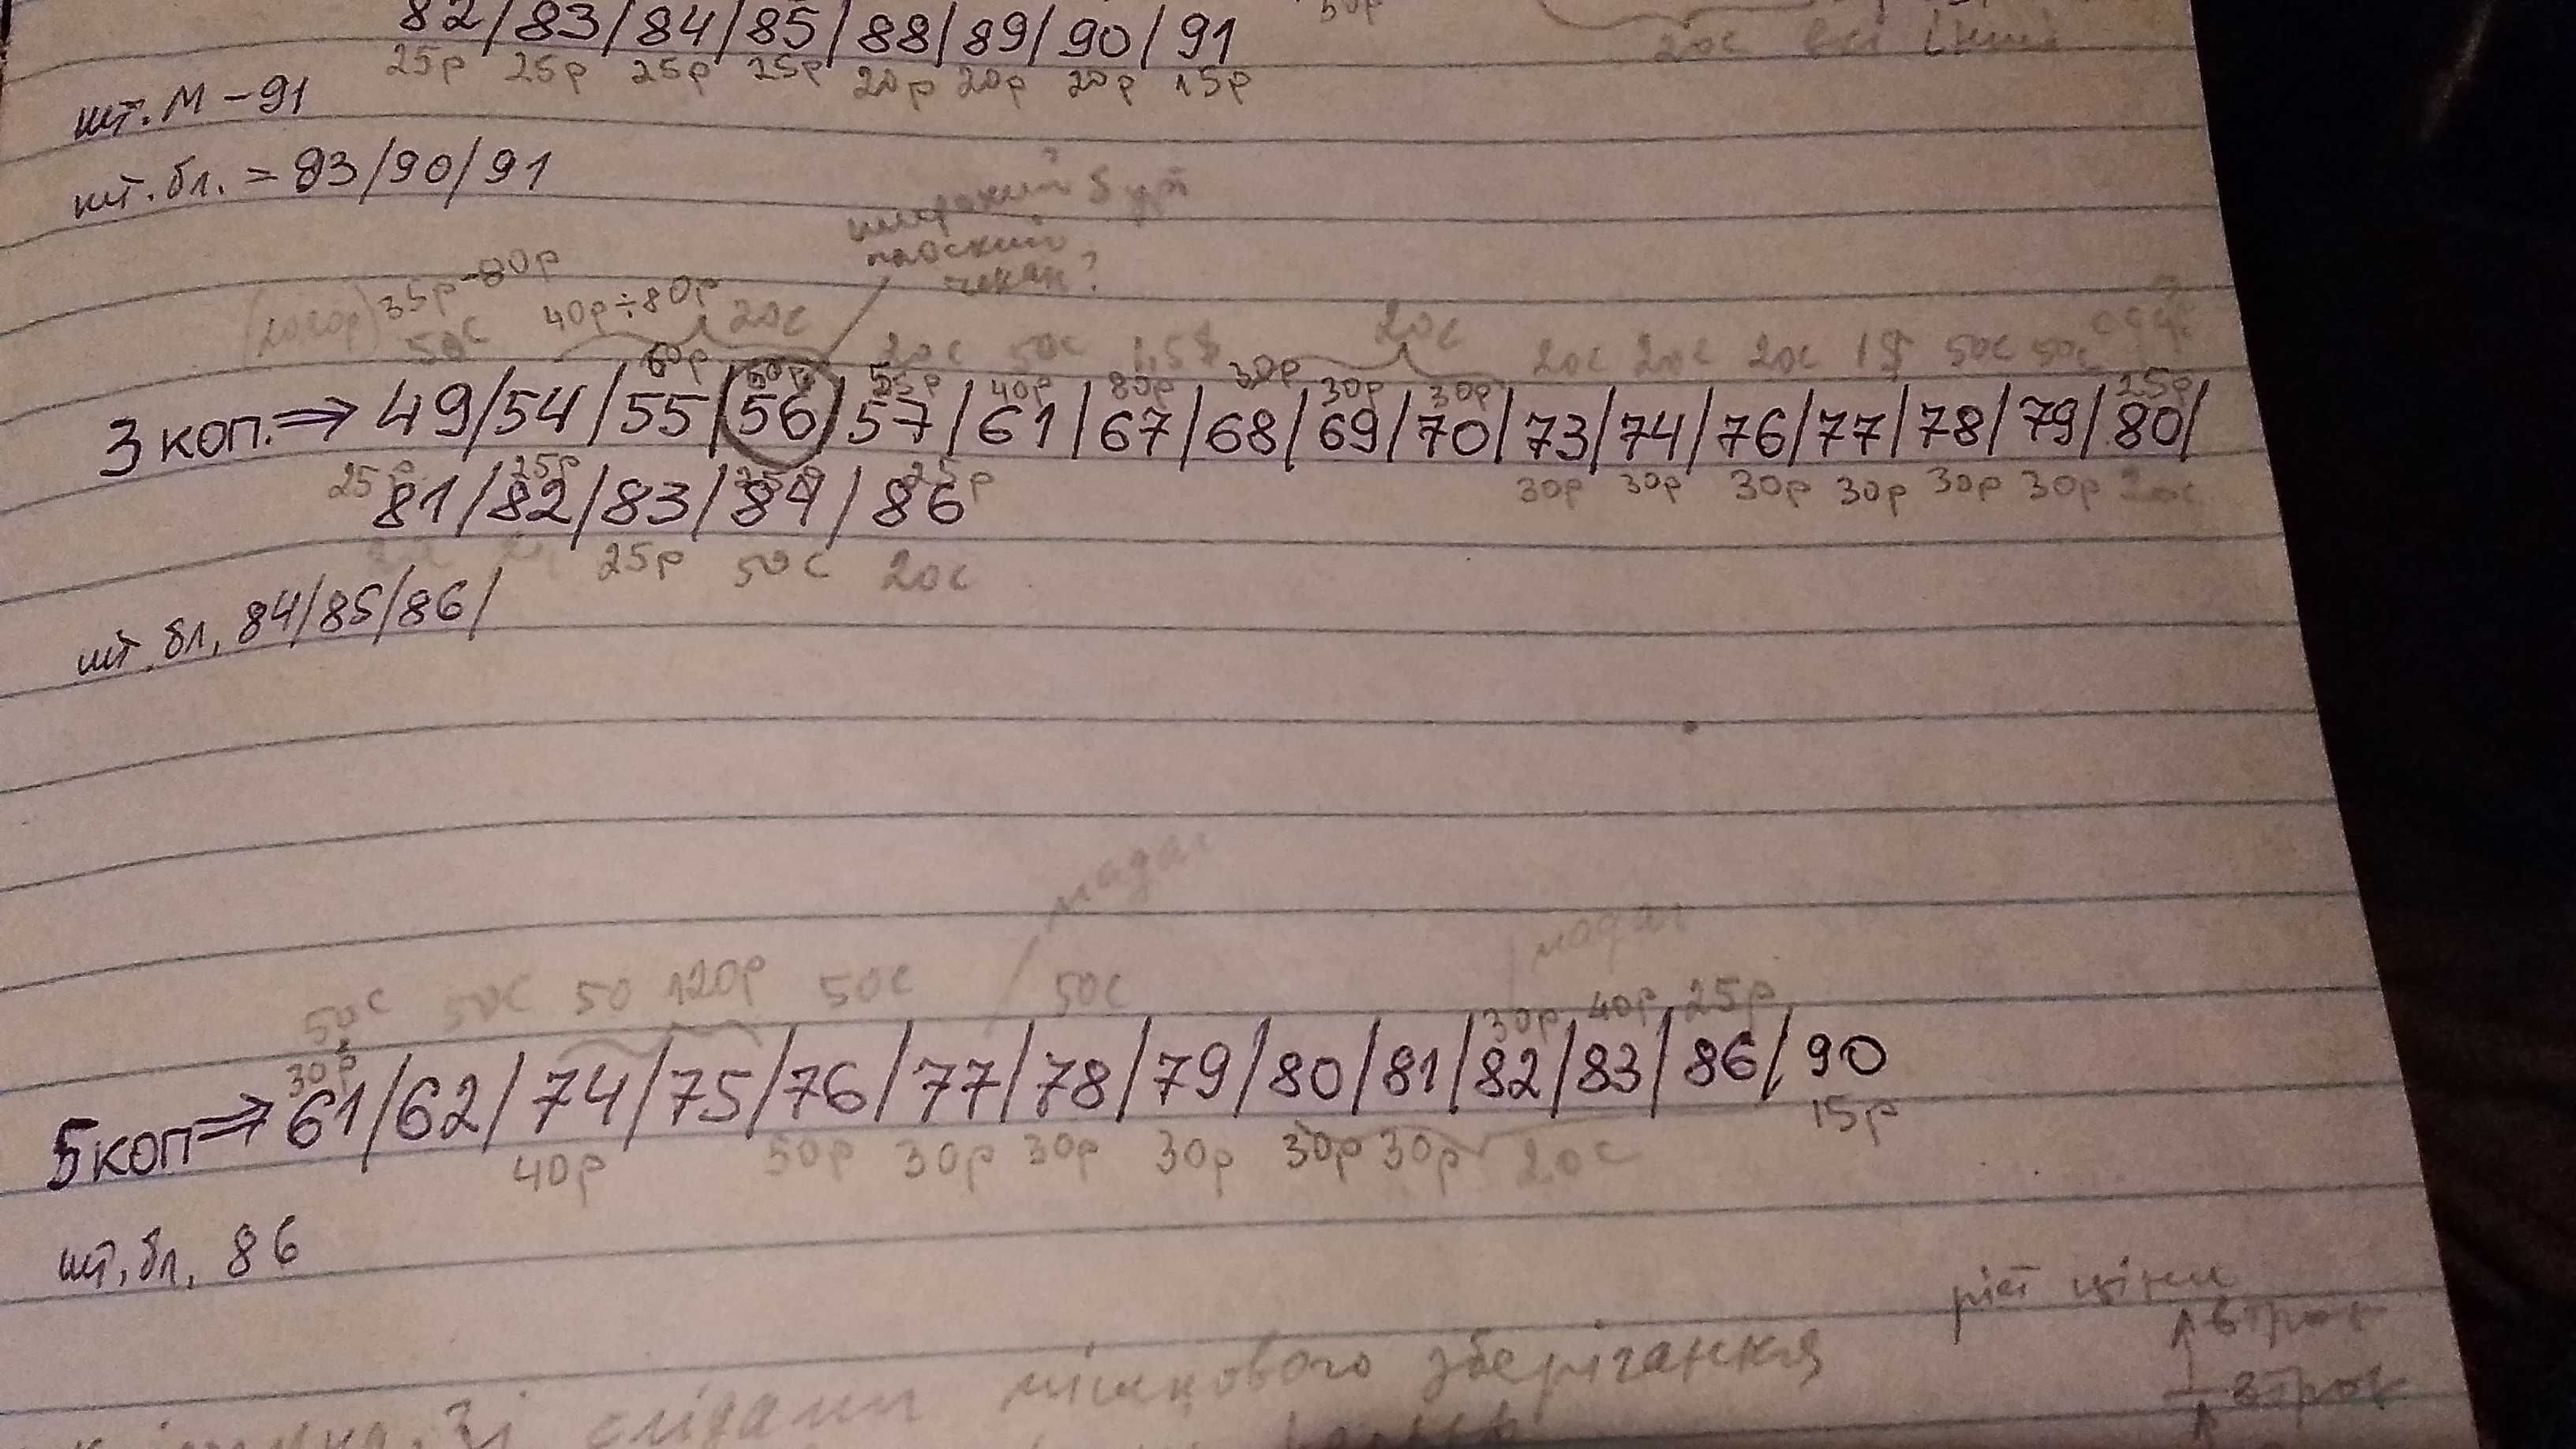 50р
82/83/84/85/88/89/90/91
25р 25р 25р 25р 20р 20р 20р 15р
20с всі
шт. М - 91
шт. бл. = 83/90/91
широкий бурт
плоский
чекан?
35р-80р
40р÷80р 20с
50с 20с 50с 1,5$ 20с 20с 20с 20с 1$ 50с 50с
60р 60р 55р 40р 80р 30р 30р 30р 25р
3 коп. ⇒ 49/54/55/56/57/61/67/68/69/70/73/74/76/77/78/79/80/
30р 30р 30р 30р 30р 30р 20с
25р 25р 25р
81/82/83/84/86
25р 50с 20с
шт. бл, 84/85/86/
50с 50с 50 120р 50с 50с
30р 30р 40р 25р
5 коп ⇒ 61/62/74/75/76/77/78/79/80/81/82/83/86/90
40р 50р 30р 30р 30р 30р 30р 20с 15р
шт. бл. 86
ріст ціни
зі слідами мішкового зберігання